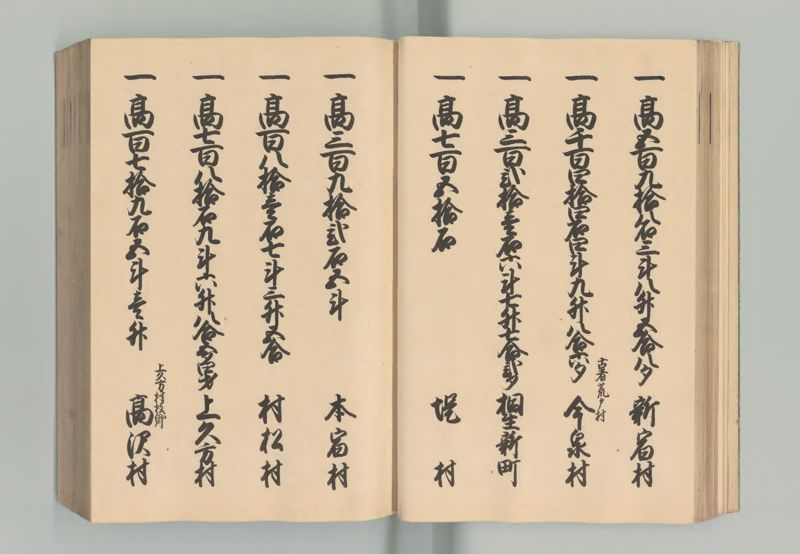 一 高五百九拾八石三斗八升五合八夕 新宿村
古者荒戸村
一 高千百四拾四石四斗九升八合六夕 今泉村
一 高三百弐拾壱石六斗七升七合弐夕 桐生新町
一 高七百五拾石 堤村
一 高三百九拾弐石五斗 本宿村
一 高百八拾壱石七斗三升五合 村松村
一 高七百八拾石九斗六升八合五勺 上久方村
上久方村枝郷
一 高百七拾九石五斗壱升 高沢村